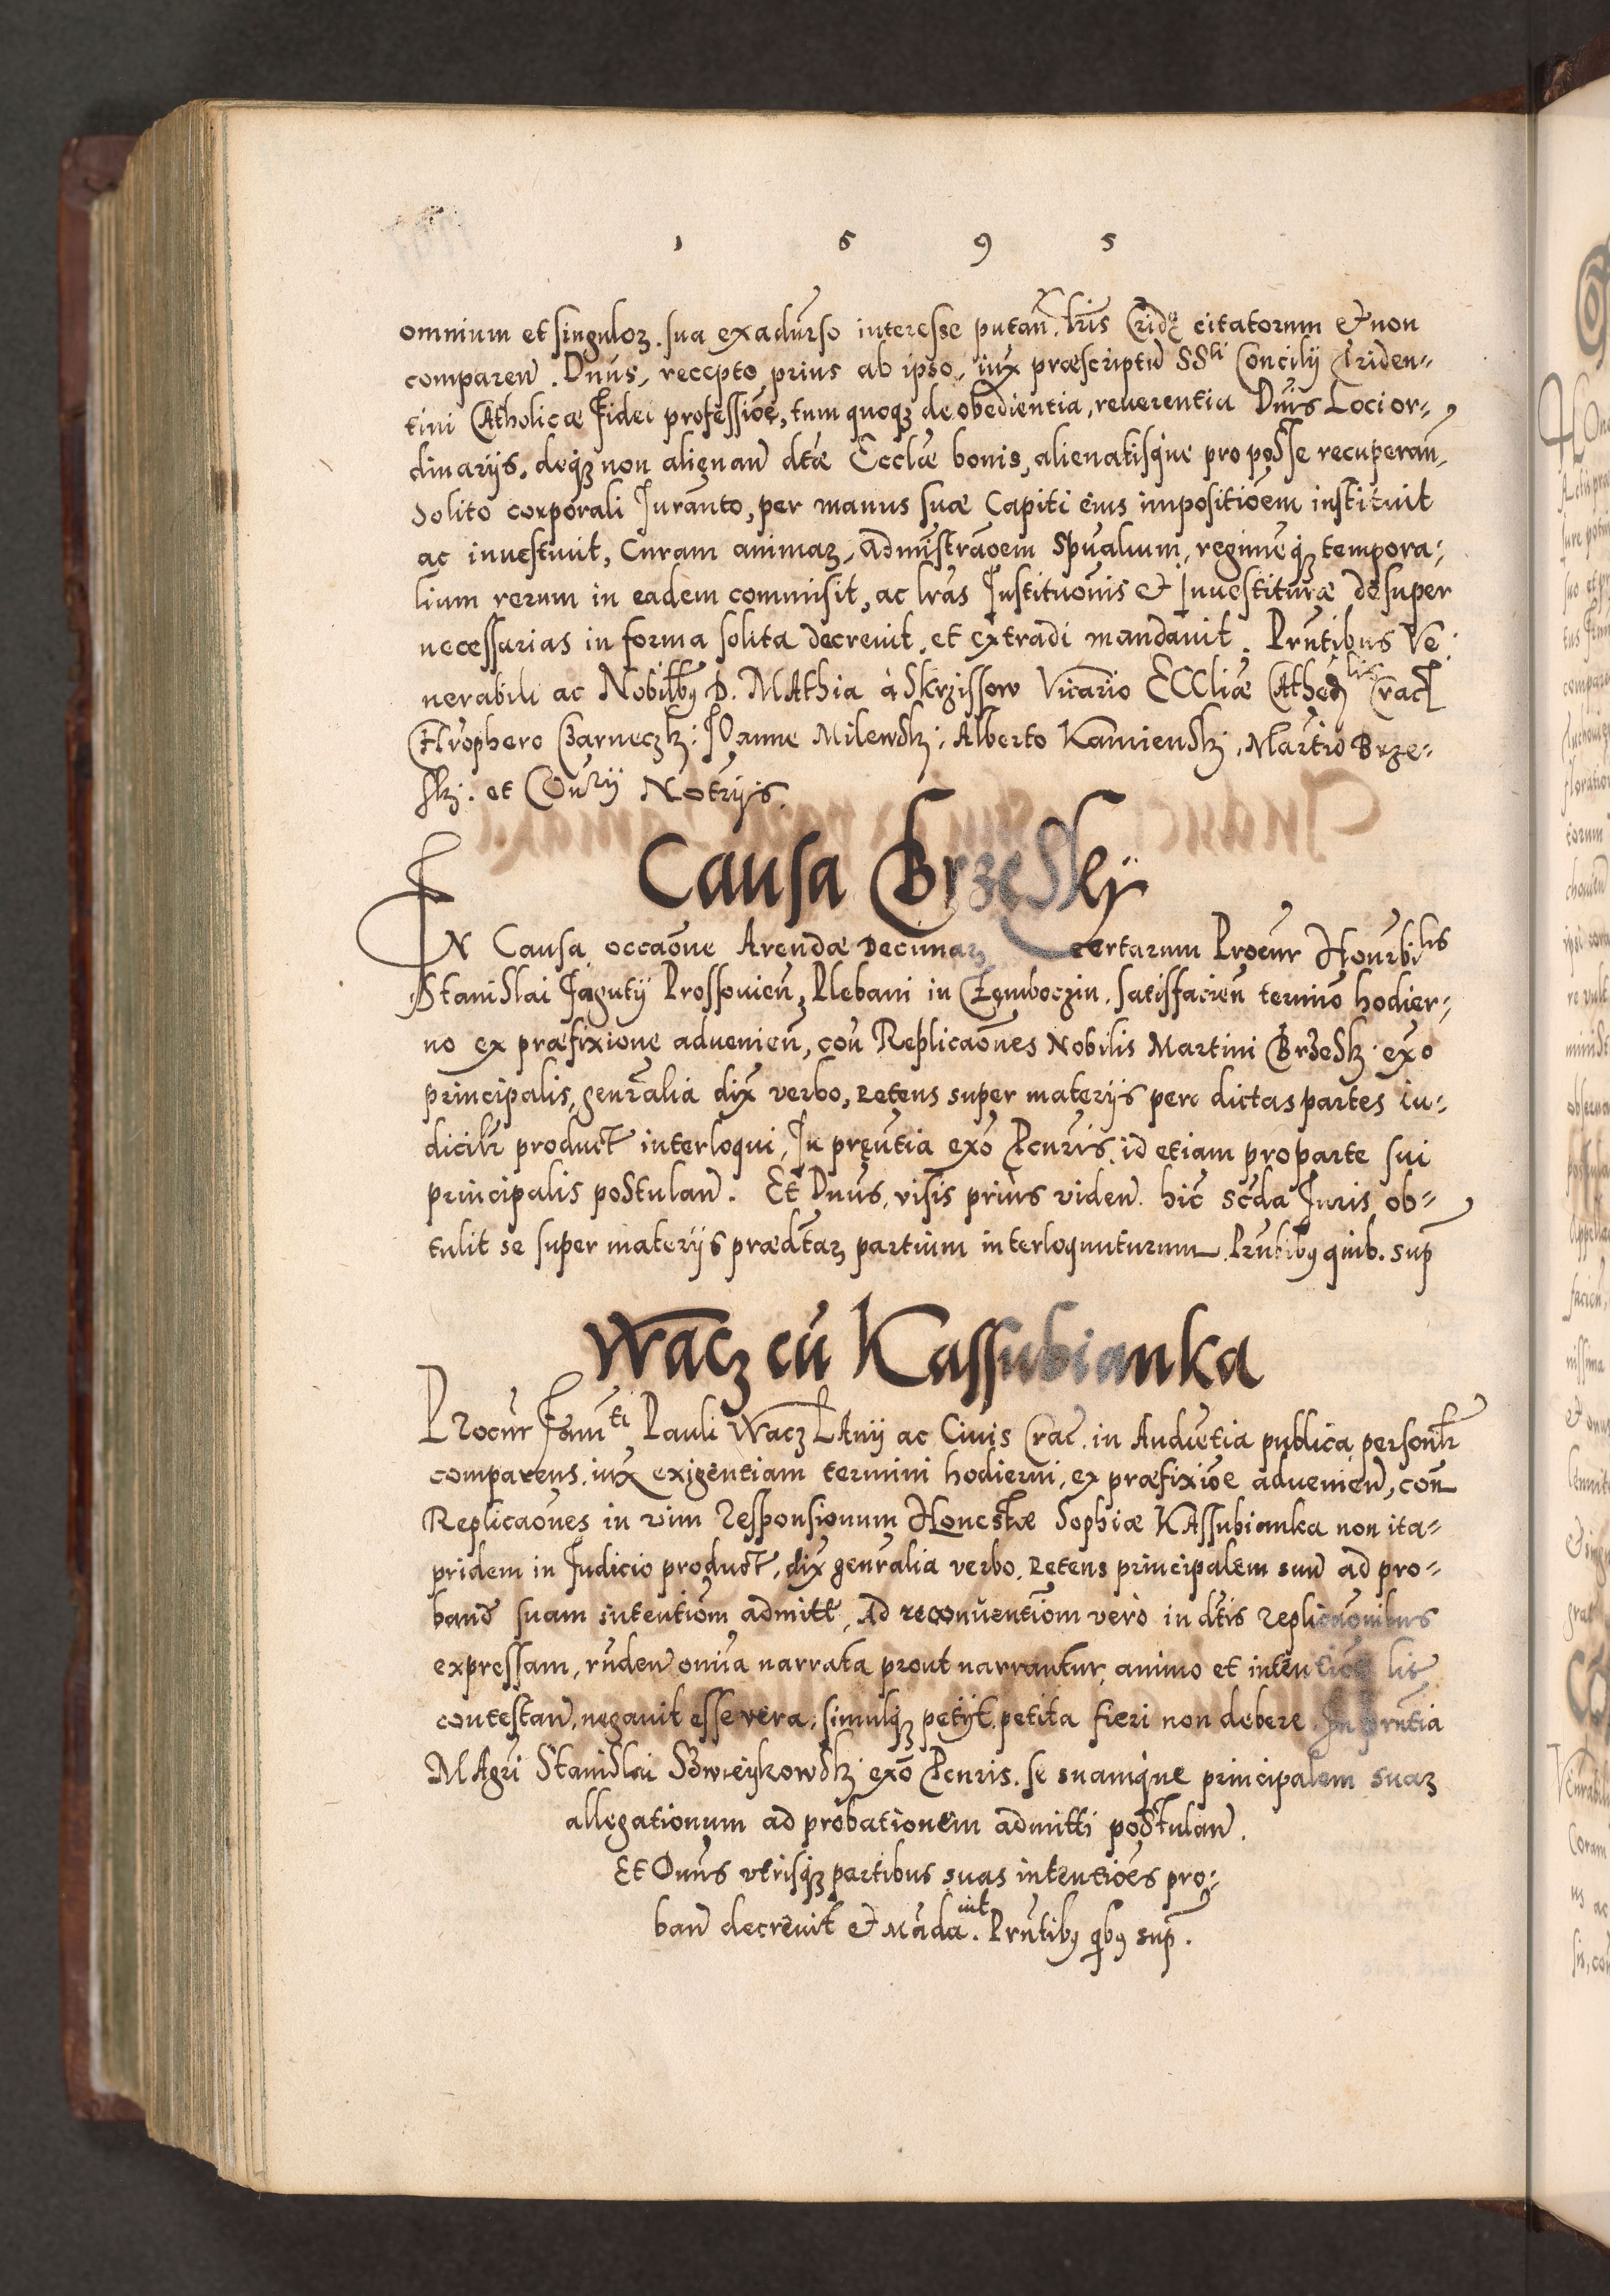 1 5 9 5
omnium et singuloꝝ sua exadũrso interesse putañ. lris Cridę citatorum et non
compareñ. Dnus, recepto prius ab ipso, iux præscriptũ SSti Concilij Triden=
tini Catholicæ Fidei professiõe, tum quoqꝫ de obedientia, reuerentia Dnis Loci or=
dinarijs, deqꝫ non alienañ dtæ Ecclæ bonis, alienatisque pro posse recuperañ,
Solito corporali Juranto, per manus suæ Capiti eius impositiõem instituit
ac inuestiuit, Curam animaꝝ, admistrãoem Spũalium, regimẽqꝫ tempora=
lium rerum in eadem commisit, ac lras Institutiõnis et Inuestituræ desuper
necessarias in forma solita decreuit, et extradi mandauit. Prñtibus Ve=
nerabili ac Nobilibꝰ D. Mathia à Skrzissow Vicario Eccliæ Cathedlis Crac
Chrophero Czarneczkj: Joanne Milewskj, Alberto Kamienskj, Martiño Brze=
skj. et Coñrij Notrijs.
Causa Brzeskÿ
In Causa occaõne Arendæ Decimaꝝ certarum Procur Hoñrbilis
Stanislai Jagutij Prossouieñ, Plebani in Częmboczin, satisfacieñ termiño hodier=
no ex præfixione aduenieñ, coñ Replicaõnes Nobilis Martini Brzeskj exõ
principalis, geñralia dix verbo, Petens super materijs perc dictas partes iu=
dicilr product interloqui, In pręntia exõ Pcuris, id etiam pro parte sui
principalis postulañ. Et Dnus, visis prius videñ. hic scda Juris ob=
tulit se super materijs prædtaꝝ partium interloquuturum. Prñtibꝰ quib. sup
Wacz cũ Kassubianka
Procur Famti Pauli Wacz Lanij ac Ciuis Crac. in Audiẽtia publica persoñlr
comparens, iux exigentiam termini hodierni, ex præfixiõe adueniẽn, coñ
Replicaõnes in vim Responsionum Honestæ Sophiæ Kassubianka non ita=
pridem in Judicio product, dix geñralia verbo, Petens principalem suũ ad pro=
bañd suam intentiõm admitt, Ad reconuentiõm verò in dtis replicaõnibus
expressam, rñdeñ omia narrata prout narrantur, animo et intentiõe lit
contestañ, negauit esse vera, simulqꝫ petijt, petita fieri non debere. In prñtia
Magri Stanislai Swieÿkowskj exõ Pcuris, se suamque principalem suaꝝ
allegationum ad probationem admitti postulañ.
Et Dnus vtrisqꝫ partibus suas intentiões pro=
bañ decreuit et mãdauit. Prñtibꝰ qbꝰ sup.